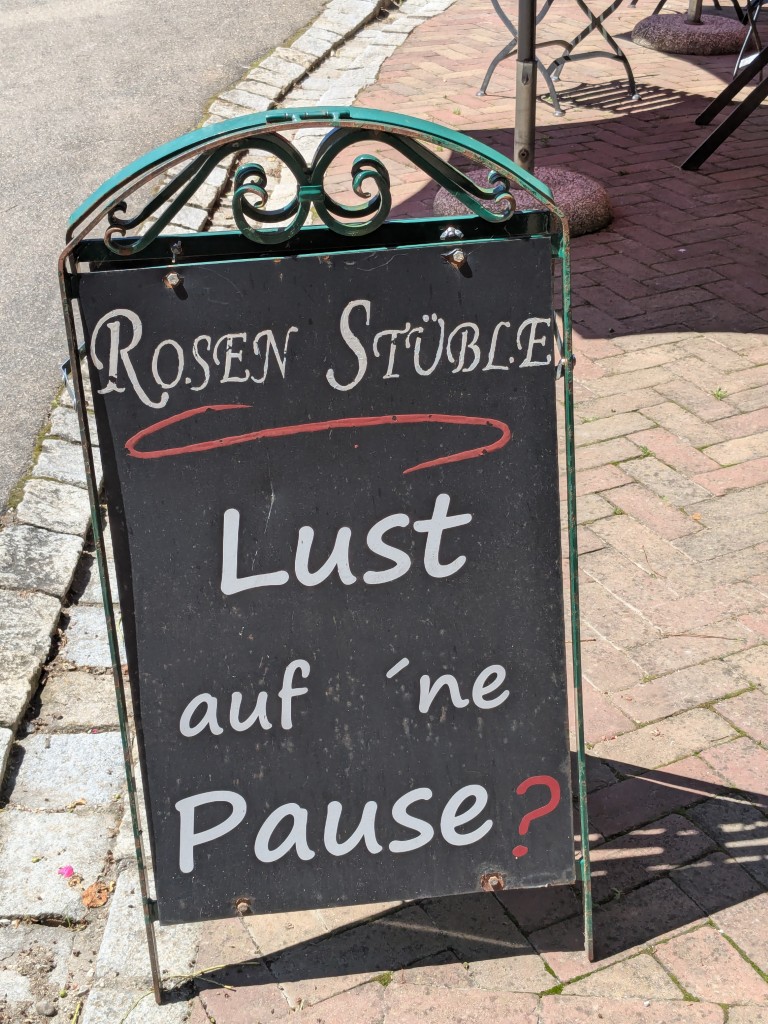 ROSEN STÜBLE
Lust
auf ´ne
Pause?